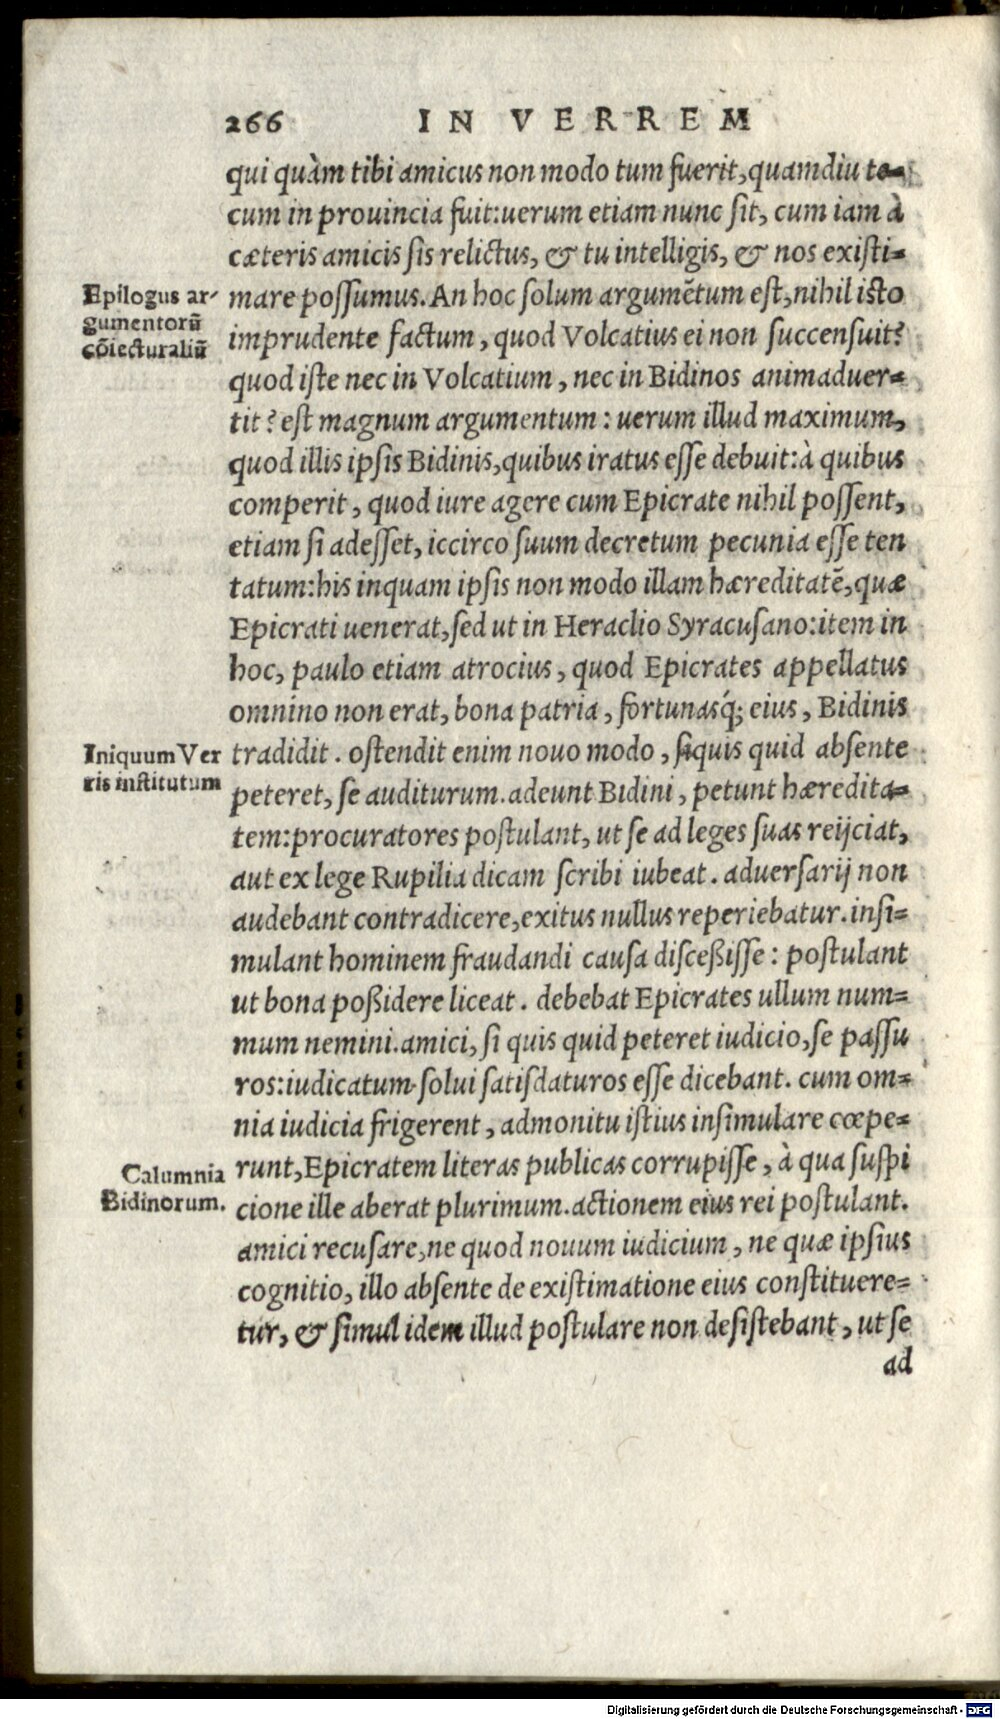 266 IN VERREM
qui quàm tibi amicus non modo tum fuerit, quamdiu te-
cum in prouincia fuit: uerum etiam nunc sit, cum iam à
cæteris amicis sis relictus, & tu intelligis, & nos existi-
Epilogus ar-
gumentorũ
cõiecturaliũ
mare possumus. An hoc solum argumẽtum est, nihil isto
imprudente factum, quod Volcatius ei non succensuit?
quod iste nec in Volcatium, nec in Bidinos animaduer-
tit? est magnum argumentum: uerum illud maximum,
quod illis ipsis Bidinis, quibus iratus esse debuit: à quibus
comperit, quod iure agere cum Epicrate nihil possent,
etiam si adesset, iccirco suum decretum pecunia esse ten
tatum: his inquam ipsis non modo illam hæreditatẽ, quæ
Epicrati uenerat, sed ut in Heraclio Syracusano: item in
hoc, paulo etiam atrocius, quod Epicrates appellatus
omnino non erat, bona patria, fortunasq́; eius, Bidinis
Iniquum Ver
ris institutum
tradidit. ostendit enim nouo modo, siquis quid absente
peteret, se auditurum. adeunt Bidini, petunt hæredita-
tem: procuratores postulant, ut se ad leges suas reijciat,
aut ex lege Rupilia dicam scribi iubeat. aduersarij non
audebant contradicere, exitus nullus reperiebatur. insi-
mulant hominem fraudandi causa disceßisse: postulant
ut bona poßidere liceat. debebat Epicrates ullum num-
mum nemini. amici, si quis quid peteret iudicio, se passu
ros: iudicatum solui satisdaturos esse dicebant. cum om-
nia iudicia frigerent, admonitu istius insimulare cœpe-
Calumnia
Bidinorum.
runt, Epicratem literas publicas corrupisse, à qua suspi
cione ille aberat plurimum. actionem eius rei postulant.
amici recusare, ne quod nouum iudicium, ne quæ ipsius
cognitio, illo absente de existimatione eius constituere-
tur, & simul idem illud postulare non desistebant, ut se
ad
Digitalisierung gefördert durch die Deutsche Forschungsgemeinschaft - DFG